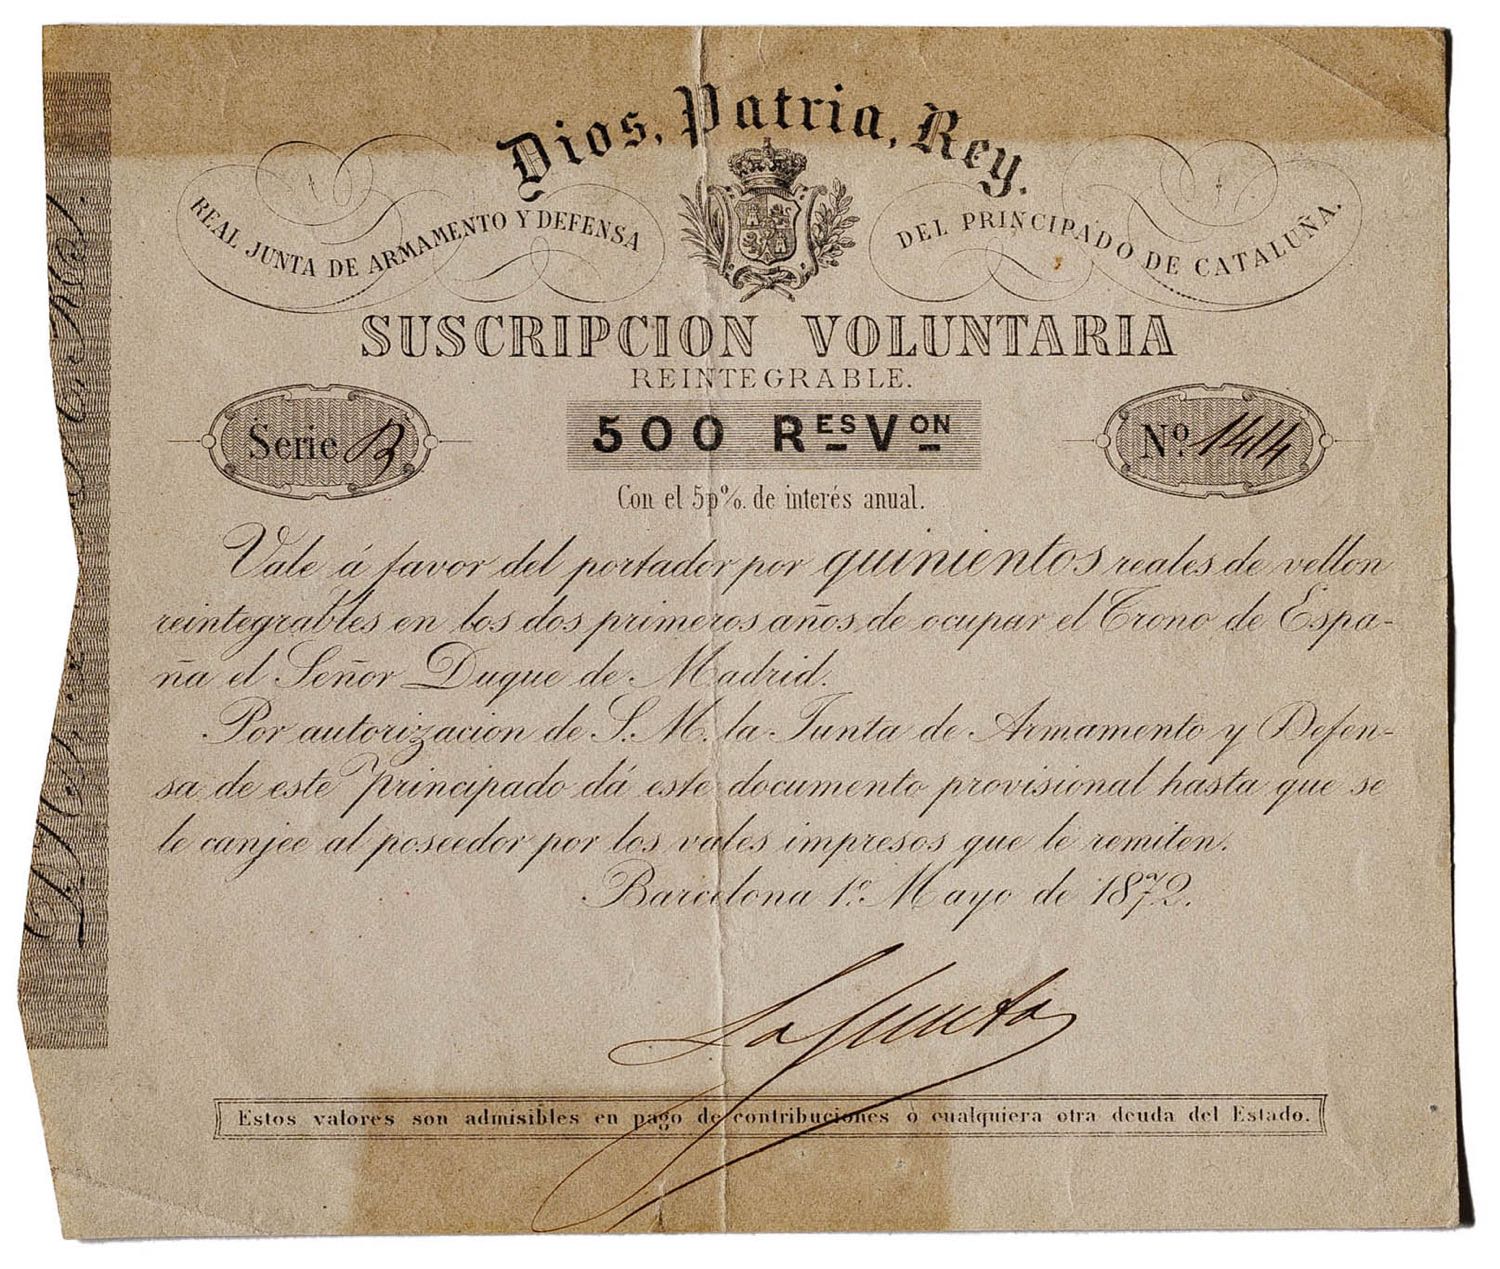 Dios, Patria, Rey.
REAL JUNTA DE ARMAMENTO Y DEFENSA
DEL PRINCIPADO DE CATALUÑA.
SUSCRIPCION VOLUNTARIA
REINTEGRABLE.
Serie B
500 R^ES V^ON
Nº 1414
Con el 5 p%. de interés anual.
Vale á favor del portador por quinientos reales de vellon
reintegrables en los dos primeros años de ocupar el Trono de Espa-
ña el Señor Duque de Madrid.
Por autorizacion de S. M. la Junta de Armamento y Defen-
sa de este Principado dá este documento provisional hasta que se
le canjee al poseedor por los vales impresos que le remiten.
Barcelona 1º Mayo de 1872.
La Junta
Estos valores son admisibles en pago de contribuciones ó cualquiera otra deuda del Estado.